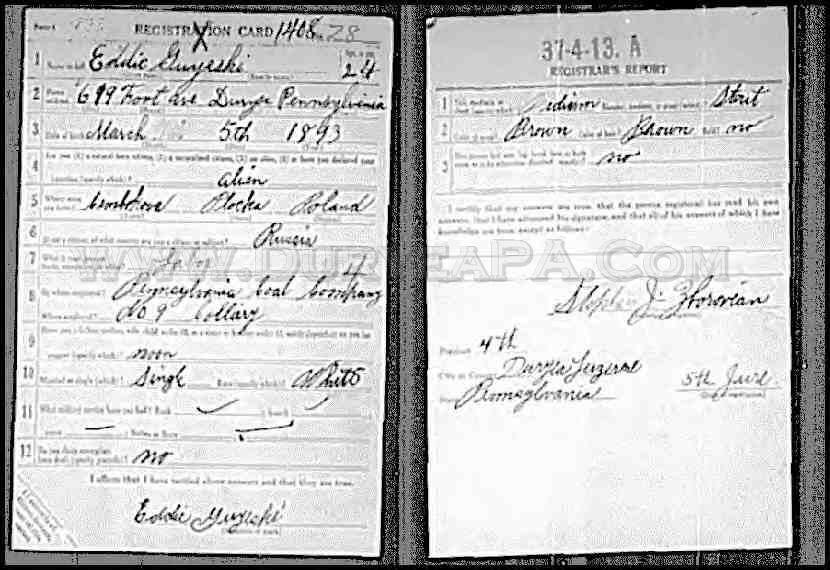 REGISTRATION CARD 1408 No. 28
1 Name in full Eddie Guyeski Age, in yrs. 24
2 Home address 699 Foot ave Duryea Pennsylvania
3 Date of birth March 5th 1893
4 Are you (1) a natural-born citizen, (2) a naturalized citizen, (3) an alien, (4) or have you declared your
intention (specify which)? alien
5 Where were you born? Plocka Poland
6 If not a citizen, of what country are you a citizen or subject? Russia
7 What is your present
4
8 By whom employed? Pennsylvania Coal Company
Where employed? No 9 Collary
9 Have you a father, mother, wife, child under 12, or a sister or brother under 12, solely dependent on you for
support (specify which)? noon
10 Married or single (which)? Single Race (specify which)? White
11 What military service have you had? Rank Branch
years Nation or State
12 Do you claim exemption from draft (specify grounds)? no
I affirm that I have verified above answers and that they are true.
Eddie Guyeski
37-4-13. A
REGISTRAR'S REPORT
1 Medium Stout
2 Color of eyes? Brown Color of hair? Brown Bald? no
3 no
I certify that my answers are true, that the person registered has read his own
answers, that I have witnessed his signature, and that all of his answers of which I have
knowledge are true, except as follows:
WWW.DURYEAPA.COM
Precinct 4th
City or County Duryea Luzerne
State Pennsylvania 5th June